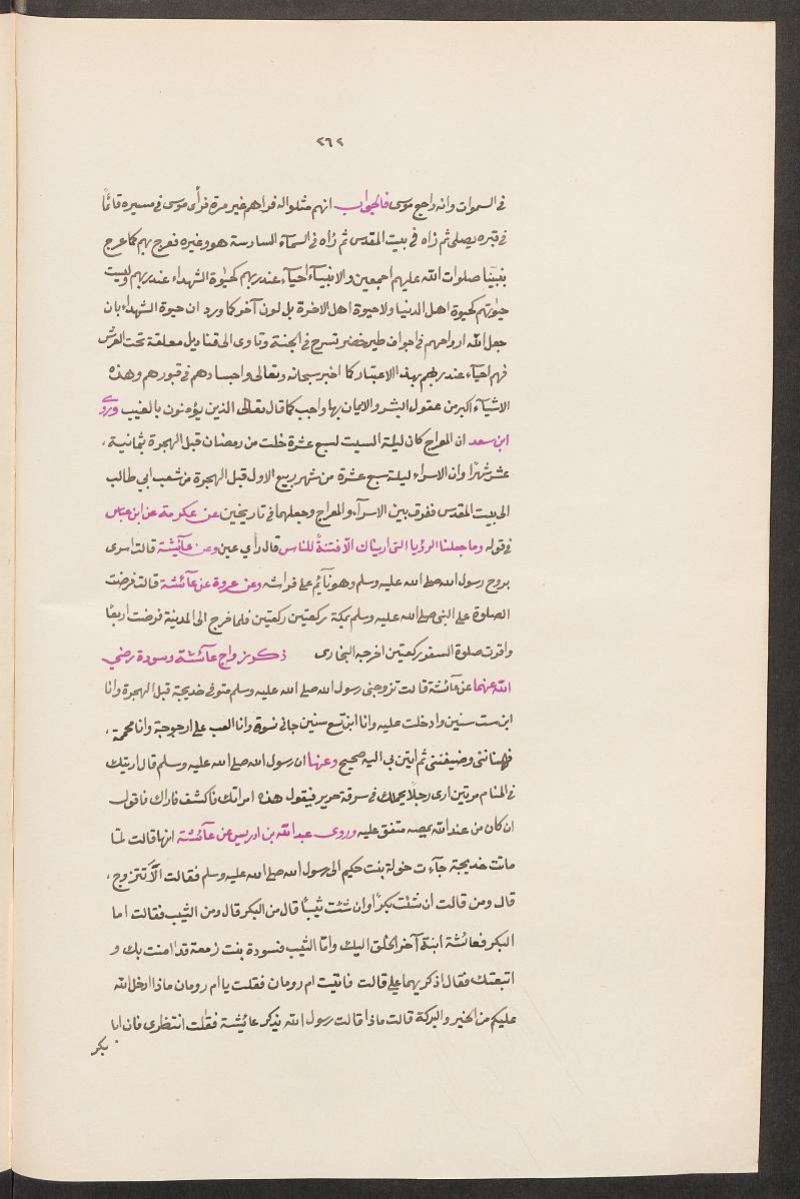 ٢٦٢
في السموات وانه راجع موسى فالجواب انهم مثلوا له فراهم غير مرة فرأى موسى في مسيره قائمًا
في قبره يصلى ثم رأه في بيت المقدس ثم رأه في السمآء السادسة هو وغيره فعرج بهم كما عرج
بنبينا صلوات الله عليهم اجمعين والانبيآء احيآء عند ربهم كحيوة الشهداء عند ربهم وليست
حيوتهم كحيوة اهل الدنيا ولا حيوة اهل الاخرة بل لون آخر كما ورد ان حيوة الشهداء بان
جعل الله ارواحهم في اجواف طير خضر تسرح في الجنة وتاوى الى قناديل معلقة تحت العرش
فهم احيآء عند ربهم بهذا الاعتبار كما اخبر سبحانه وتعالى واجسادهم في قبورهم وهذه
الاشيآء اكبر من عقول البشر والايمان بها واجب كما قال تعالى الذين يؤمنون بالغيب وروى
ابن سعد ان المعراج كان ليلة السبت لسبع عشرة خلت من رمضان قبل الهجرة بثمانية
عشر شهرًا وان الاسراء ليلة سبع عشرة من شهر ربيع الاول قبل الهجرة من شعب ابي طالب
الى بيت المقدس ففرق بين الاسرآء والمعراج وجعلهما في تاريخين عن عكرمة عن ابن عباس
في قوله وما جعلنا الرؤيا التى اريناك الا فتنةً للناس قال رأي عين وعن عآئشة قالت اسرى
بروح رسول الله صلى الله عليه وسلم وهو نآئم على فراشه وعن عروة عن عآئشة قالت فرضت
الصلوة على النبى صلى الله عليه وسلم بمكة ركعتين ركعتين فلما خرج الى المدينة فرضت اربعًا
واقرت صلوة السفر ركعتين اخرجه البخارى ذكر زواج عآئشة وسودة رضي
الله عنهما عن عآئشة قالت تزوجنى رسول الله صلى الله عليه وسلم متوفى خديجة قبل الهجرة وانا
ابن ست سنين وادخلت عليه وانا ابن تسع سنين جانى نسوة وانا العب على ارجوجة وانا مجممة
فهيئننى وصنعننى ثم اتين بى اليه صحيح وعنها ان رسول الله صلى الله عليه وسلم قال اريتك
في المنام مرتين ارى رجلًا يحملك في سرقة حرير فيقول هذه امراتك فاكشف فاراك فاقول
ان كان من عند الله يمضه متفق عليه وروى عبدالله بن ادريس عن عآئشة انها قالت لمّا
ماتت خديجة جآءت خولة بنت حكيم الى رسول الله صلى الله عليه وسلم فقالت الاّ تتزوج
قال ومن قالت ان شئت بكرًا وان شئت ثيبًا قال من البكر قال ومن الثيب فقالت اما
البكر فعائشة ابنة آخر الخلق اليك وامّا الثيب فسودة بنت زمعة قد امنت بك و
اتبعتك فقال اذكريهما علي قالت فاتيت ام رومان فقلت يا ام رومان ماذا ادخل الله
عليكم من الخير والبركة قالت ماذا قالت رسول الله يذكر عائيشة فقلت انتظرى فان ابا
بكر